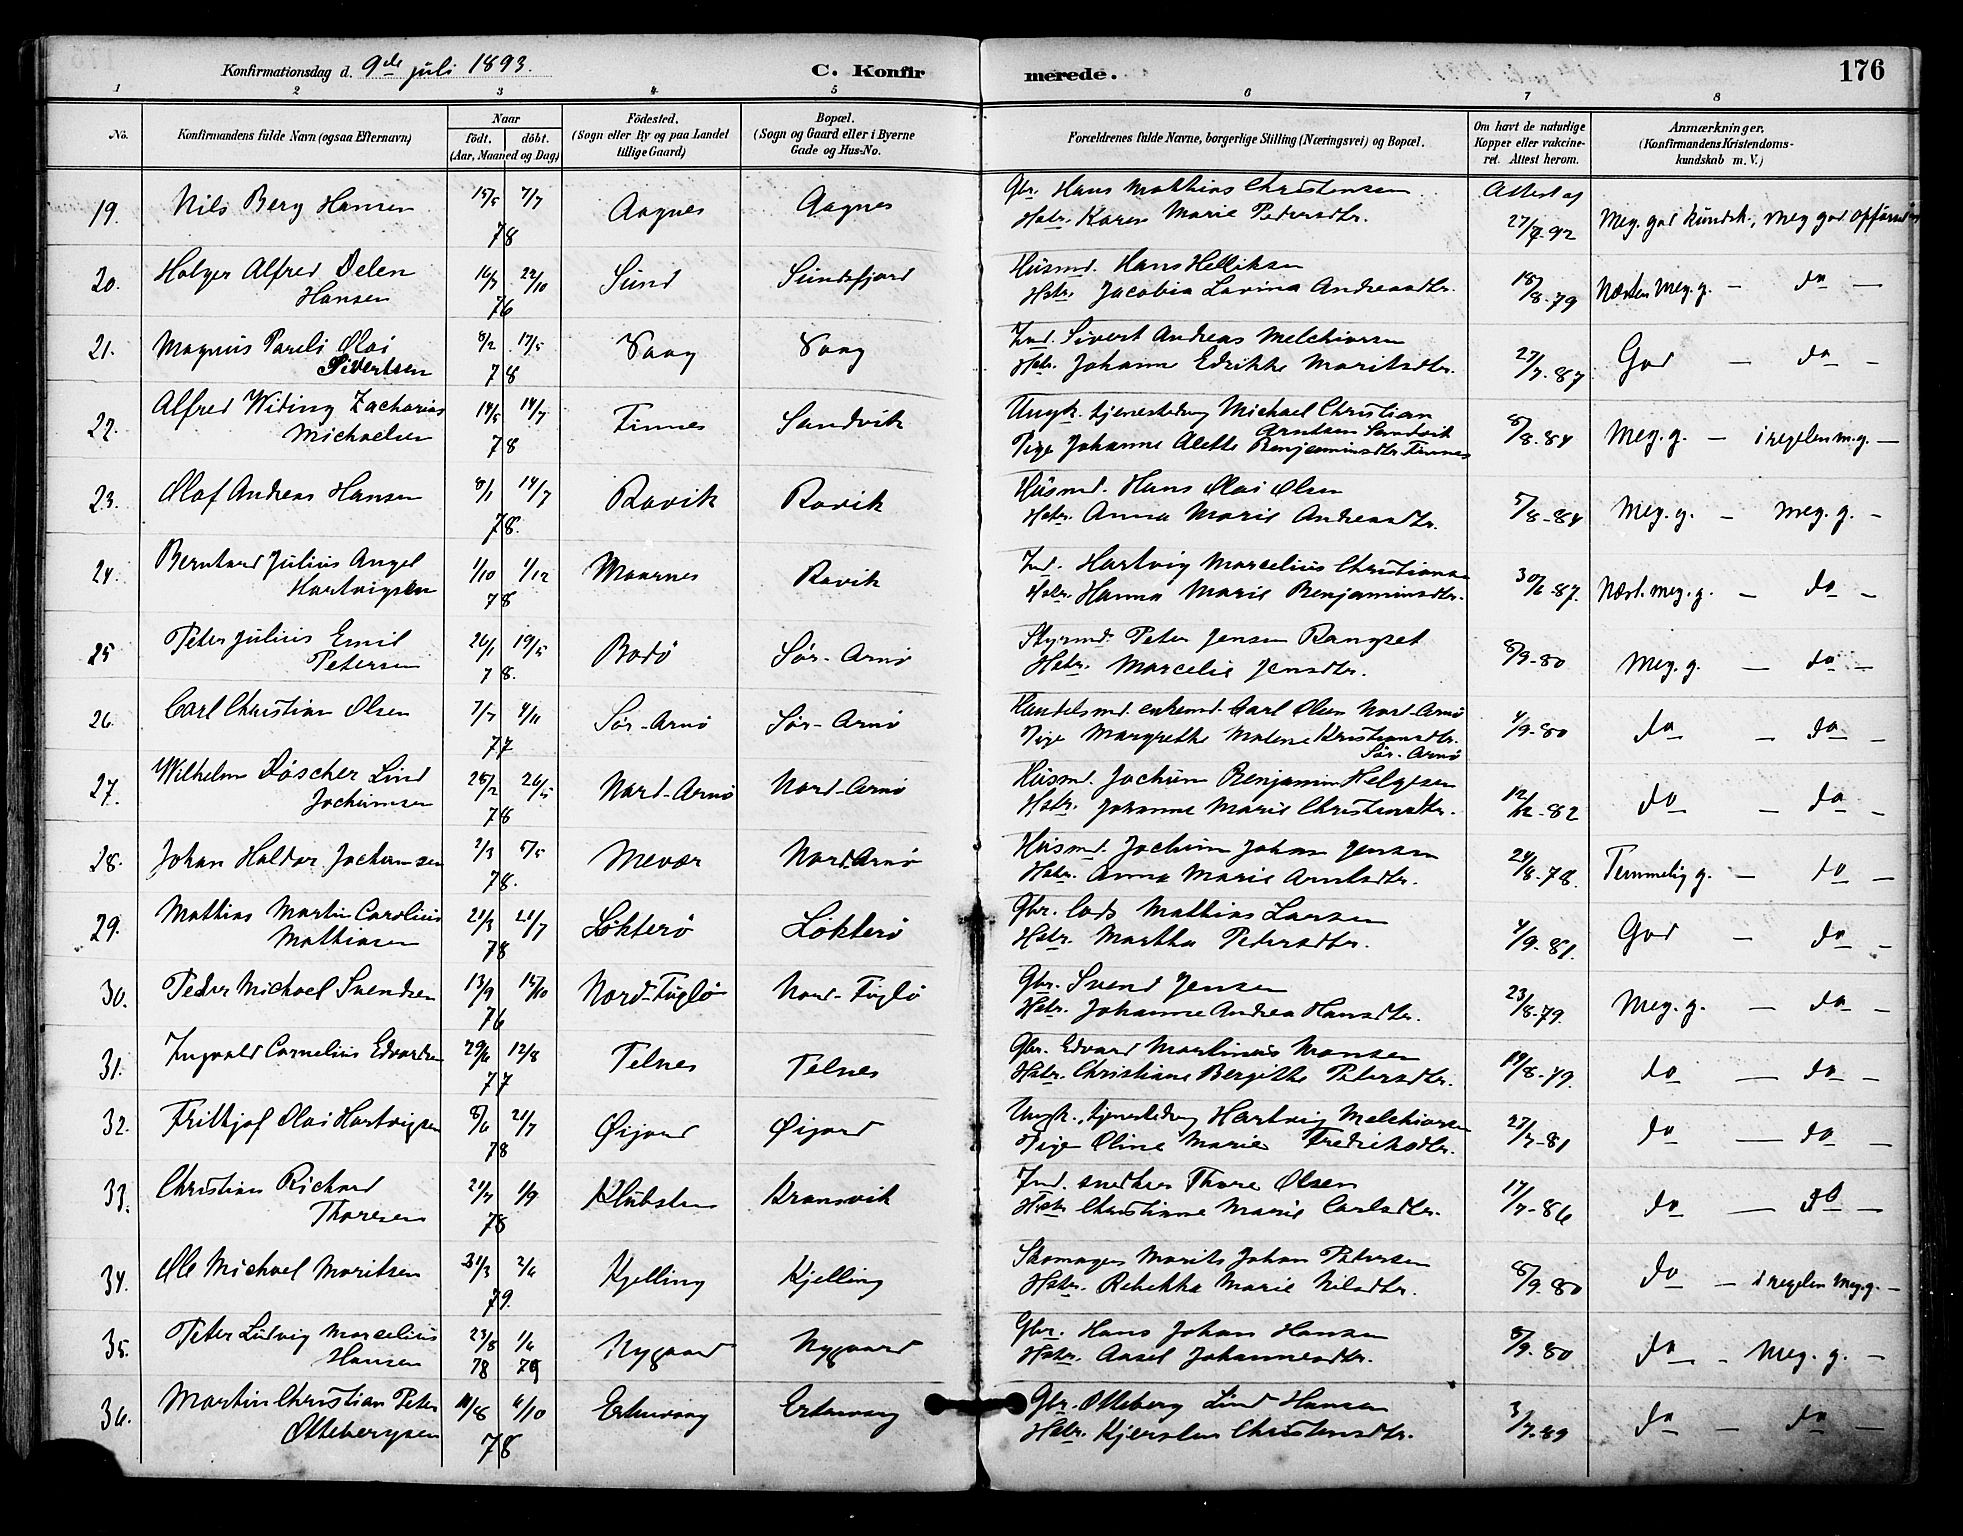 Konfirmationsdag d. 9de juli 1893.
C. Konfirmerede.
176
1 2 3 4 5 6 7 8
No.
Konfirmandens fulde Navn (ogsaa Efternavn)
Naar
födt, döbt.
(Aar, Maaned og Dag)
Födested.
(Sogn eller By og paa Landet
tillige Gaard)
Bopæl.
(Sogn og Gaard eller i Byerne
Gade og Hus-No.
Forældrenes fulde Navne, borgerlige Stilling (Næringsvei) og Bopæl.
Om havt de naturlige
Kopper eller vakcine-
ret. Attest herom.
Anmærkninger,
(Konfirmandens Kristendoms-
kundskab m. V.)
19. Nils Berg Hansen 15/5 7/7 78 Aagnes Aagnes Gbr. Hans Mathias Christensen Attest af
Hstr. Karen Marie Pedersdtr. 27/7-92 Meg. god kundsk., meg god opførsel
20. Holger Alfred Delen 22/10 Sund Sundsfjord Husmd. Hans Helliksen
Hansen 76 Hstr. Jacobia Lovina Andreasdtr. 18/8-79 Næsten meg. g. — do —
21. Magnus Pareli Olai 8/2 17/5 Vaag Vaag Ind. Sivert Andreas Melchiorsen
Sivertsen 78 Hstr. Johanne Edrikke Moritsdtr. 27/7-87 God — do —
22. Alfred Widing Zacharias 14/5 14/7 Finnes Sandvik Ungk. tjenestedreng Michael Christian
Michaelsen 78 Arntsen Sandvik
Pige Johanne Alette Benjaminsdtr Finnes 8/8-84 Meg. g. — i regelen m.g. —
23. Olaf Andreas Hansen 8/1 14/7 78. Ravik Ravik Husmd. Hans Olai Olsen
Hstr. Anna Marie Andreasdtr. 5/8-84 Meg. g. — Meg. g. —
24. Bernhard Julius Angel 1/10 1/12 Maarnes Ravik Ind. Hartvig Marcelius Christiansen
Hartvigsen 78 Hstr. Hanna Marie Benjaminsdtr. 30/6-87. Næst. meg. g. — do —
25 Peter Julius Emil 26/1 19/5 Bodø Sør-Arnø Styrmd. Peter Jensen Rangset
Petersen 78. Hstr. Marcelie Jensdtr. 8/9-80 Meg. g. — do —
26. Carl Christian Olsen 7/7 4/11 77 Sør-Arnø Sør-Arnø Handelsmd. enkemd. Carl Olsen Nord-Arnø
Pige Margrethe Malene Kristiansdtr. 4/9-80 do — do —
Sør-Arnø
27. Wilhelm Døscher Lind 25/2 26/5 Nord-Arnø Nord-Arnø Husmd. Jochum Benjamin Helgesen
Jochumsen 78 Hstr. Johanne Marie Christensdtr. 12/12-82 do — do —
28. Johan Haldor Jochumsen 2/3 5/5 78. Mevær Nord-Arnø Husmd. Jochum Johan Jensen
Hstr. Anna Marie Arntsdtr. 24/8-78. Temmelig g. — do —
29. Mathias Martin Carolius 21/3 21/7 Løkterø Løkterø Gbr. Lods Mathias Larsen
Mathiasen 78 Hstr. Martha Pedersdtr. 4/9-81. God — do —
30. Peder Michael Svendsen 13/9 15/10 76 Nord-Fuglø Nord-Fuglø Gbr. Svend Jensen
Hstr. Johanne Andrea Hansdtr. 23/8-79. Meg. g. — do —
31. Ingvald Cornelius Edvardsen 29/6 12/8 77 Telnes Telnes Gbr. Edvard Martinus Monsen
Hstr. Christiane Bergitte Petersdtr. 19/8-79. do — do —
32. Frithjof Olai Hartvigsen 8/6 21/7 78 Øijord Øijord Ungk., tjenestedreng Hartvig Melchiorsen
Pige Oline Marie Fredriksdtr. 27/7-81 do — do —
33. Christian Richard 21/7 1/9 Klubsten Kransvik Ind. snedker Thore Olsen
Thoresen 78 Hstr. Christianne Marie Carlsdtr. 17/7-86 do — do —
34. Ole Michael Moritsen 31/3 2/6 79. Kjelling Kjelling Skomager Morits Johan Petersen
Hstr. Rebekka Marie Nilsdtr. 8/9-80 do — i regelen meg.g. —
35. Peter Ludvig Marcelius 23/8 1/6 Nygaard Nygaard Gbr. Hans Johan Hansen
Hansen 78 79 Hstr. Aasel Johannesdtr. 8/9-80 do — Meg. g. —
36. Martin Christian Peter 11/8 6/10 Ertenvaag Ertenvaag Gbr. Otteberg Lind Hansen
Ottebergsen 78 Hstr. Kjersten Christensdtr. 3/7-89 do — do —